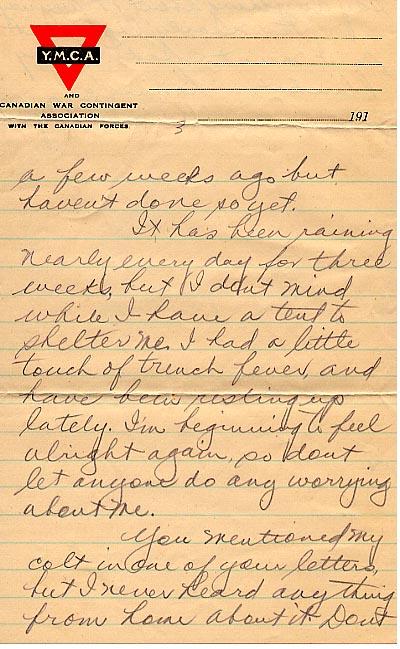 Y.M.C.A.
AND
CANADIAN WAR CONTINGENT
ASSOCIATION
WITH THE CANADIAN FORCES.
191
3
a few weeks ago but
haven't done so yet.
It has been raining
nearly every day for three
weeks, but I dont mind
while I have a tent to
shelter me. I had a little
touch of trench fever, and
have been resting up
lately. I'm beginning to feel
alright again, so dont
let anyone do any worrying
about me.
You mentioned my
colt in one of your letters,
but I never heard anything
from home about it. Dont